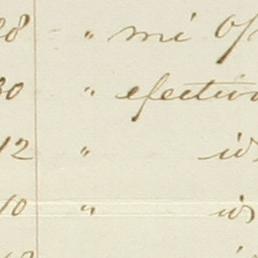 28 " mi Of
30 " efectivo
12 " id
10 " id